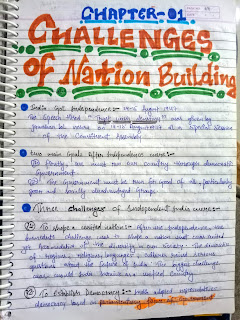 CHAPTER-01
CHALLENGES
of Nation Building
India Got Independence:- 14-15 August 1947.
The Speech titled "Tryst with destiny" was given by
Jawaharlal Nehru on 14-15 August 1947 at a special session
of the Constituent Assembly.
Two main goals after Independence were:-
Firstly, we must run our country through democratic
Government.
The Government must be run for good of all, particularly
poor and socially disadvantaged Groups.
Three challenges of Independent India were:-
To shape a united nation:- After the Independence, the
immediate challenge was to shape a nation that was united
yet accommodative of the diversity in our society. The diversity
of regions, religions, languages, cultures raised serious
questions about the future of India. The biggest challenge
India survive as a unified country.
To Establish Democracy:- India adopted representative
democracy based on parliamentary form of Government.